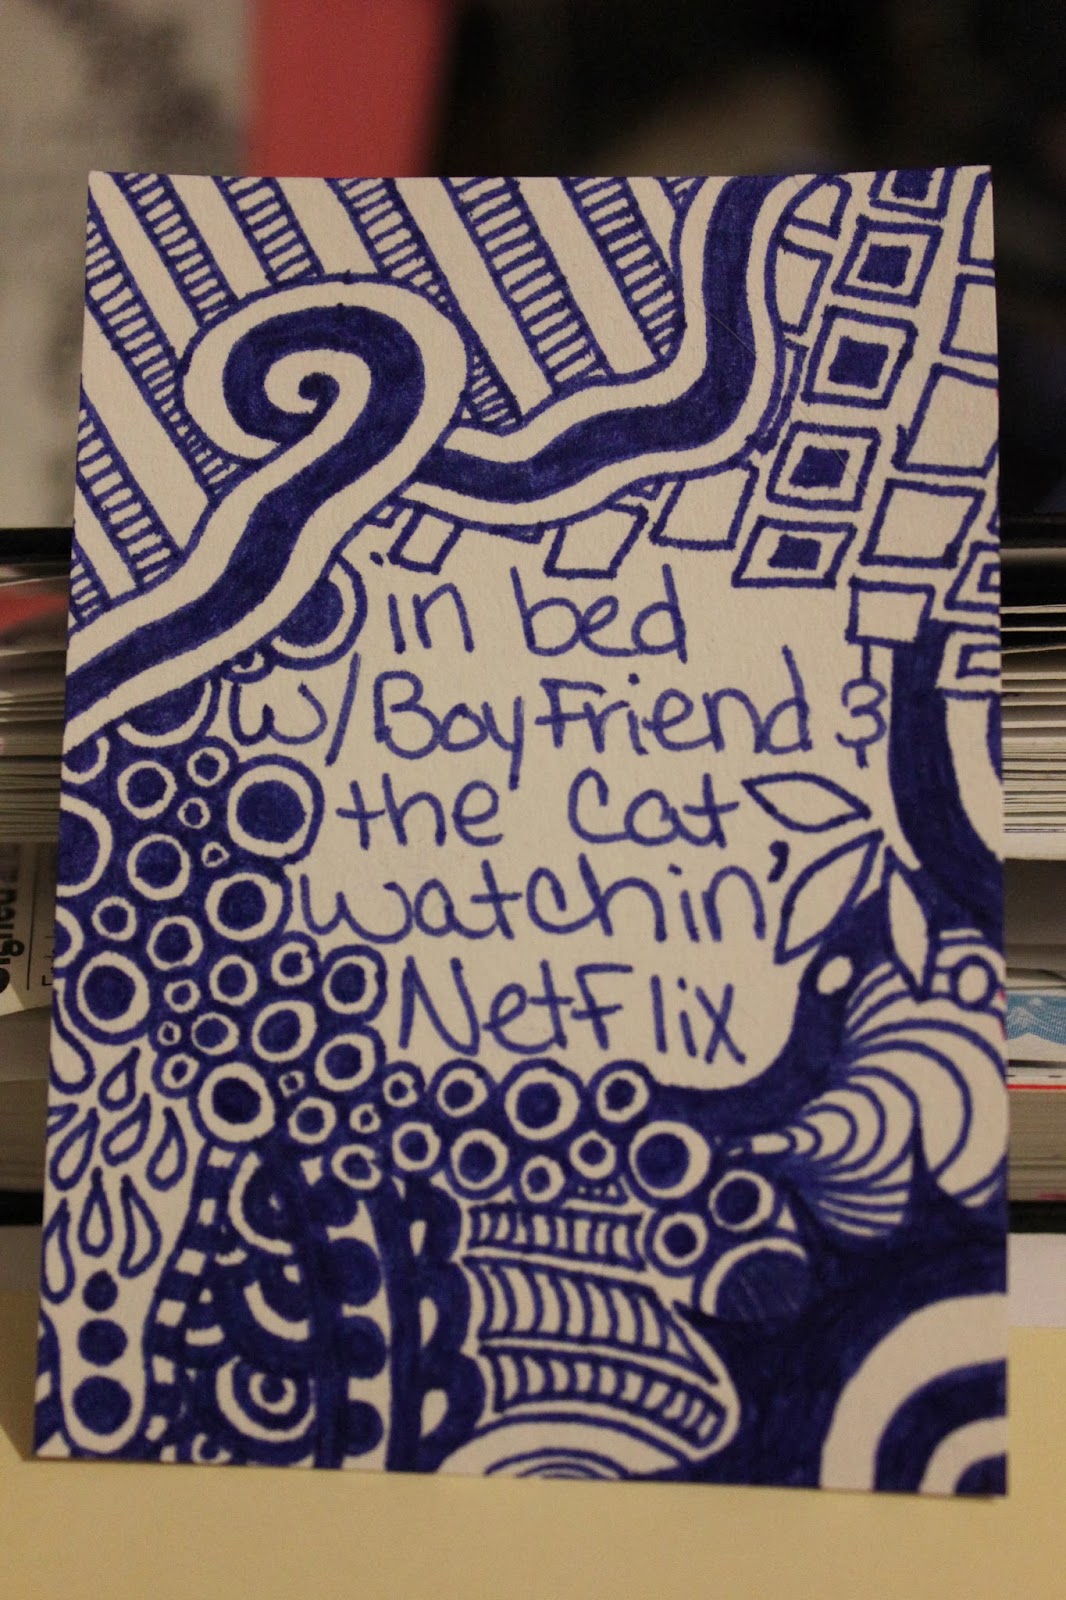 in bed
w/BoyFriend &
the cat
watchin'
NetFlix